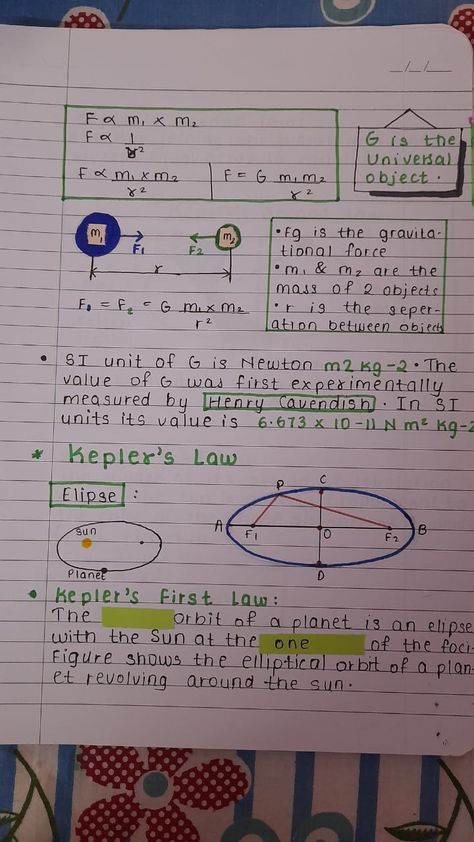 _/_/_
F ∝ m₁ × m₂
F ∝ 1/r²
F ∝ m₁ × m₂ / r²
F = G m₁ m₂ / r²
G is the
universal
object.
m₁
F₁
F₂
m₂
r
F₁ = F₂ = G m₁ × m₂ / r²
• Fg is the gravita-
tional force
• m₁ & m₂ are the
mass of 2 objects
• r is the seper-
ation between objects
• SI unit of G is Newton m2 kg-2. The
value of G was first experimentally
measured by Henry Cavendish. In SI
units its value is 6.673 × 10 -11 N m² kg-2
* Kepler's Law
Elipse :
Sun
Planet
P
C
A
F₁
O
F₂
B
D
• Kepler's First Law:
The orbit of a planet is an elipse
with the Sun at the one of the foci.
Figure shows the elliptical orbit of a plan-
et revolving around the sun.